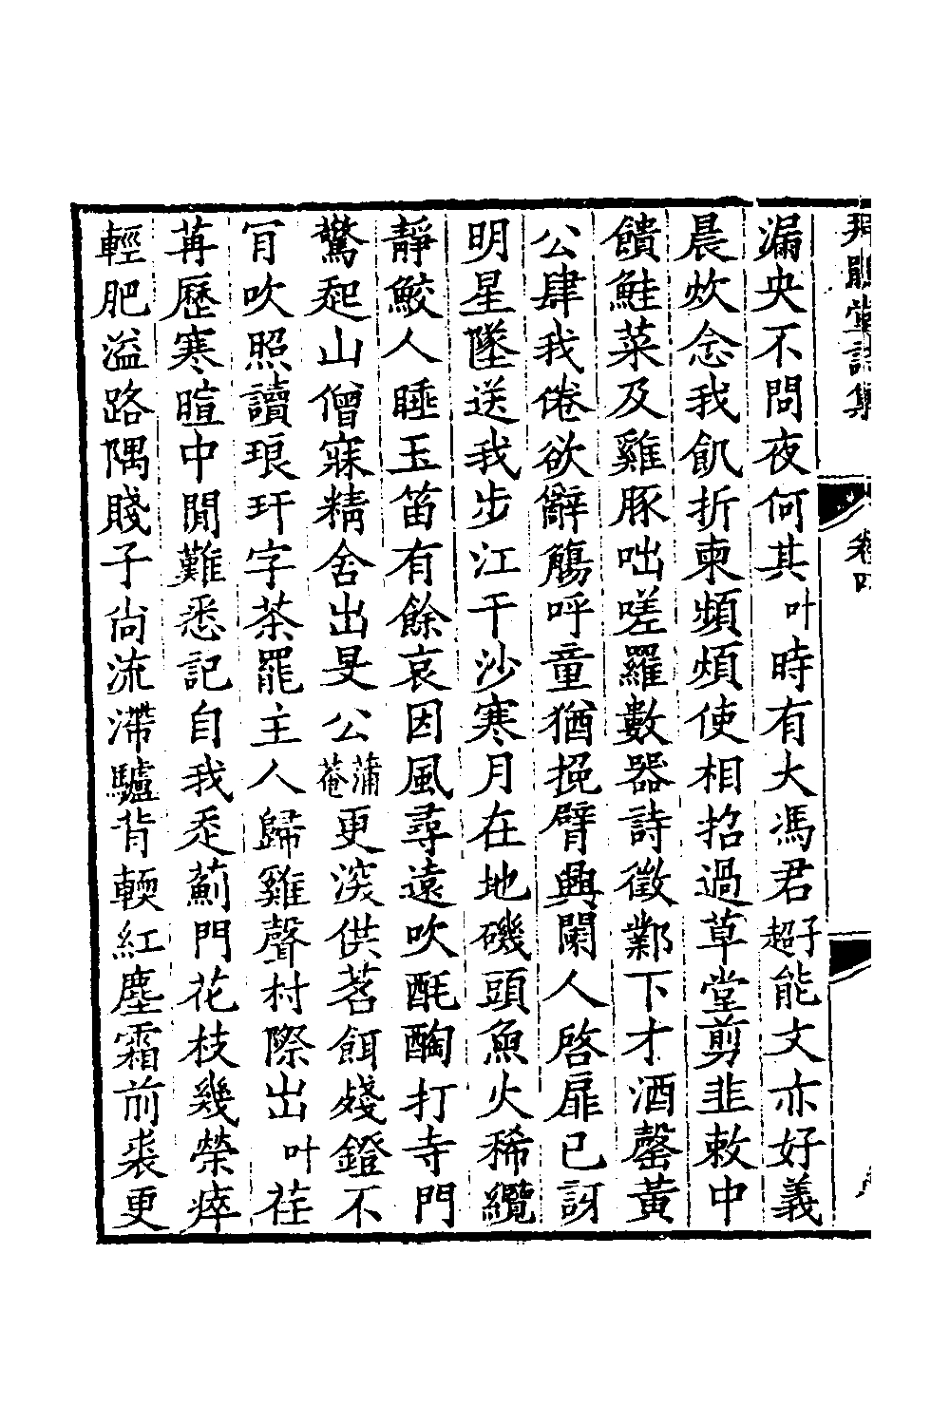 漏央不問夜何其叶時有大馮君超子能文亦好義
晨炊念我飢折柬頻煩使相招過草堂剪韭敕中
饋鮭菜及雞豚咄嗟羅數器詩徵鄴下才酒罄黃
公肆我倦欲辭觴呼童猶挽臂興闌人啓扉已訝
明星墜送我步江干沙寒月在地磯頭魚火稀纜
靜鮫人睡玉笛有餘哀因風尋遠吹酕醄打寺門
驚起山僧寐精舍出旻公蒲菴更深供茗餌殘鐙不
肎吹照讀琅玕字茶罷主人歸雞聲村際出叶荏
苒歷寒暄中閒難悉記自我丞薊門花枝幾榮瘁
輕肥溢路隅賤子尙流滯驢背輭紅塵霜前裘更
堂詩集
卷四